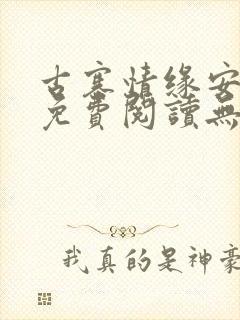 古寨情緣安
免費閱讀無
我真的是神豪